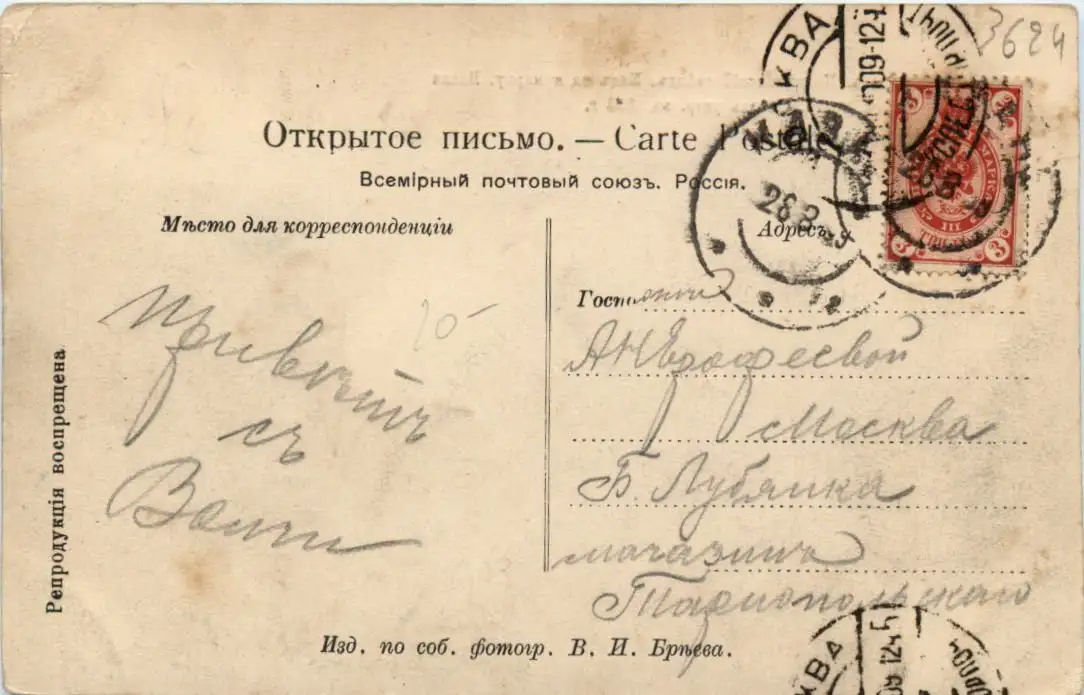 3624
Открытое письмо. — Carte Postale
Всемірный почтовый союзъ. Россія.
Мѣсто для корреспонденціи
Адресъ
Привѣтъ
съ
Волги
Госпожѣ
А Н Ерофеевой
Москва
Б. Лубянка
магазинъ
Тарнопольскаго
Репродукція воспрещена
Изд. по соб. фотогр. В. И. Брѣева.